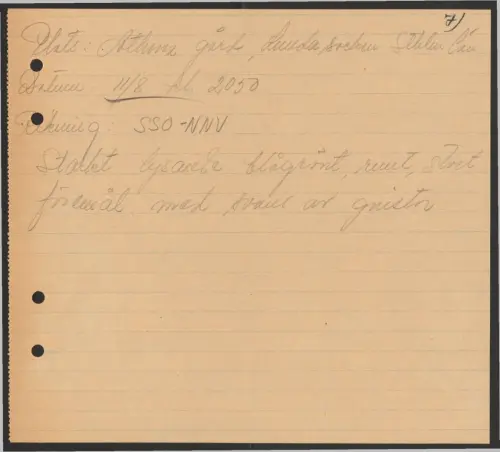 7)
Plats: Åthorn gård, Lunda socken Sthlm län
Datum 11/8 kl 2050
Riktning: SSO-NNV
Starkt lysande blågrönt, runt, stort
föremål med svans av gnistor